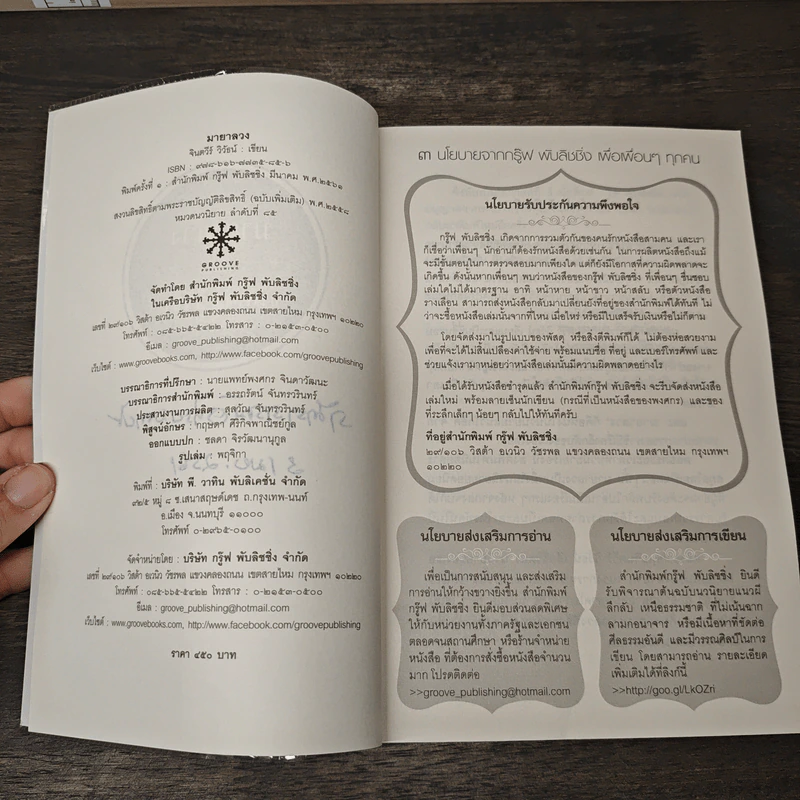 มายาลวง
จินตวีร์ วิวัธน์ : เขียน
ISBN : ๙๗๘-๖๑๖-๗๗๓๕-๘๕-๖
พิมพ์ครั้งที่ ๑ : สำนักพิมพ์ กรู๊ฟ พับลิชชิ่ง มีนาคม พ.ศ.๒๕๖๑
สงวนลิขสิทธิ์ตามพระราชบัญญัติลิขสิทธิ์ (ฉบับเพิ่มเติม) พ.ศ.๒๕๕๘
หมวดนวนิยาย ลำดับที่ ๘๕
GROOVE
PUBLISHING
จัดทำโดย สำนักพิมพ์ กรู๊ฟ พับลิชชิ่ง
ในเครือบริษัท กรู๊ฟ พับลิชชิ่ง จำกัด
เลขที่ ๒๙/๑๐๖ วิสต้า อเวนิว วัชรพล แขวงคลองถนน เขตสายไหม กรุงเทพฯ ๑๐๒๒๐
โทรศัพท์ : ๐๘๕-๖๖๕-๕๔๒๒ โทรสาร : ๐-๒๑๕๓-๐๕๐๐
อีเมล : groove_publishing@hotmail.com
เว็บไซต์ : www.groovebooks.com, http://www.facebook.com/groovepublishing
บรรณาธิการที่ปรึกษา : นายแพทย์พงศกร จินดาวัฒนะ
บรรณาธิการสำนักพิมพ์ : อรรถรัตน์ จันทรวรินทร์
ประสานงานการผลิต : สุลวัณ จันทรวรินทร์
พิสูจน์อักษร : กฤษดา ศิริกิจพาณิชย์กูล
ออกแบบปก : ชลดา จิรวัฒนานุกูล
รูปเล่ม : พฤจิกา
พิมพ์ที่ : บริษัท พี. วาทิน พับลิเคชั่น จำกัด
๙๒/๕ หมู่ ๘ ซ.เสนาสฤษดิ์เดช ถ.กรุงเทพ-นนท์
อ.เมือง จ.นนทบุรี ๑๑๐๐๐
โทรศัพท์ ๐-๒๙๖๕-๐๑๐๐
จัดจำหน่ายโดย : บริษัท กรู๊ฟ พับลิชชิ่ง จำกัด
เลขที่ ๒๙/๑๐๖ วิสต้า อเวนิว วัชรพล แขวงคลองถนน เขตสายไหม กรุงเทพฯ ๑๐๒๒๐
โทรศัพท์ : ๐๘๕-๖๖๕-๕๔๒๒ โทรสาร : ๐-๒๑๕๓-๐๕๐๐
อีเมล : groove_publishing@hotmail.com
เว็บไซต์ : www.groovebooks.com, http://www.facebook.com/groovepublishing
ราคา ๔๕๐ บาท
๓ นโยบายจากกรู๊ฟ พับลิชชิ่ง เพื่อเพื่อนๆ ทุกคน
นโยบายรับประกันความพึงพอใจ
กรู๊ฟ พับลิชชิ่ง เกิดจากการรวมตัวกันของคนรักหนังสือสามคน และเรา
ก็เชื่อว่าเพื่อนๆ นักอ่านก็ต้องรักหนังสือด้วยเช่นกัน ในการผลิตหนังสือถึงแม้
จะมีขั้นตอนในการตรวจสอบมากเพียงใด แต่ก็ยังมีโอกาสที่ความผิดพลาดจะ
เกิดขึ้น ดังนั้นหากเพื่อนๆ พบว่าหนังสือของกรู๊ฟ พับลิชชิ่ง ที่เพื่อนๆ ชื่นชอบ
เล่มใดไม่ได้มาตรฐาน อาทิ หน้าหาย หน้าขาว หน้าสลับ หรือตัวหนังสือ
รางเลือน สามารถส่งหนังสือกลับมาเปลี่ยนยังที่อยู่ของสำนักพิมพ์ได้ทันที ไม่
ว่าจะซื้อหนังสือเล่มนั้นจากที่ไหน เมื่อไหร่ หรือมีใบเสร็จรับเงินหรือไม่ก็ตาม
โดยจัดส่งมาในรูปแบบของพัสดุ หรือสิ่งตีพิมพ์ก็ได้ ไม่ต้องห่อสวยงาม
เพื่อที่จะได้ไม่สิ้นเปลืองค่าใช้จ่าย พร้อมแนบชื่อ ที่อยู่ และเบอร์โทรศัพท์ และ
ช่วยแจ้งเรามาหน่อยว่าหนังสือเล่มนั้นมีความผิดพลาดอย่างไร
เมื่อได้รับหนังสือชำรุดแล้ว สำนักพิมพ์กรู๊ฟ พับลิชชิ่ง จะรีบจัดส่งหนังสือ
เล่มใหม่ พร้อมลายเซ็นนักเขียน (กรณีที่เป็นหนังสือของพงศกร) และของ
ที่ระลึกเล็กๆ น้อยๆ กลับไปให้ทันทีครับ
ที่อยู่สำนักพิมพ์ กรู๊ฟ พับลิชชิ่ง
๒๙/๑๐๖ วิสต้า อเวนิว วัชรพล แขวงคลองถนน เขตสายไหม กรุงเทพฯ
๑๐๒๒๐
นโยบายส่งเสริมการอ่าน
เพื่อเป็นการสนับสนุน และส่งเสริม
การอ่านให้กว้างขวางยิ่งขึ้น สำนักพิมพ์
กรู๊ฟ พับลิชชิ่ง ยินดีมอบส่วนลดพิเศษ
ให้กับหน่วยงานทั้งภาครัฐและเอกชน
ตลอดจนสถานศึกษา หรือร้านจำหน่าย
หนังสือ ที่ต้องการสั่งซื้อหนังสือจำนวน
มาก โปรดติดต่อ
>>groove_publishing@hotmail.com
นโยบายส่งเสริมการเขียน
สำนักพิมพ์กรู๊ฟ พับลิชชิ่ง ยินดี
รับพิจารณาต้นฉบับนวนิยายแนวผี
ลึกลับ เหนือธรรมชาติ ที่ไม่เน้นฉาก
ลามกอนาจาร หรือมีเนื้อหาที่ขัดต่อ
ศีลธรรมอันดี และมีวรรณศิลป์ในการ
เขียน โดยสามารถอ่าน รายละเอียด
เพิ่มเติมได้ที่ลิงก์นี้
>>http://goo.gl/LkOZri